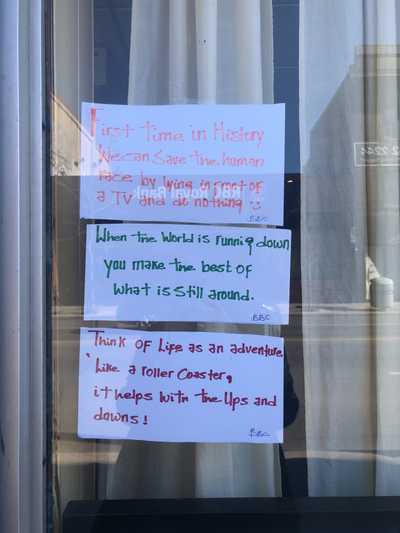 First time in History
We can Save the human
race by lying in front of
a TV and do nothing
BBC
When the World is runnig down
you make the best of
what is still around.
BBC
Think of Life as an adventure
Like a roller Coaster,
it helps with the Ups and
downs!
BBC
RBC Royal Bank